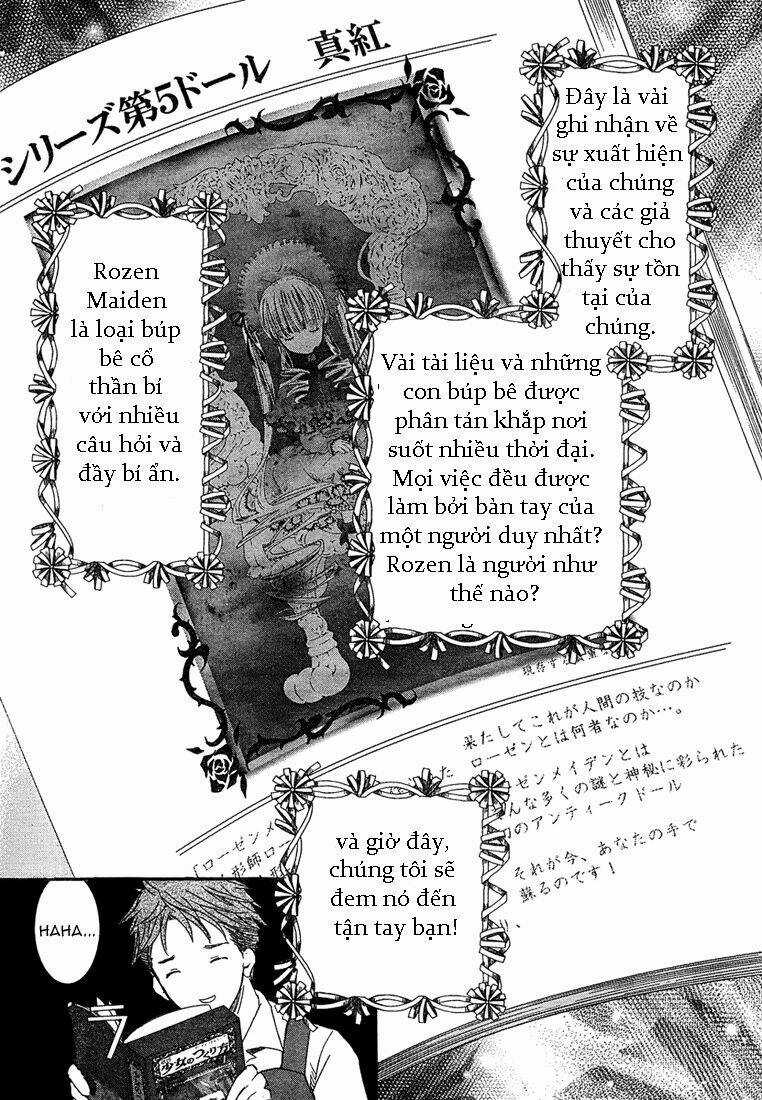 シリーズ第5ドール 真紅
Đây là vài
ghi nhận về
sự xuất hiện
của chúng
và các giả
thuyết cho
thấy sự tồn
tại của
chúng.
Rozen
Maiden
là loại búp
bê cổ
thần bí
với nhiều
câu hỏi và
đầy bí ẩn.
Vài tài liệu và những
con búp bê được
phân tán khắp nơi
suốt nhiều thời đại.
Mọi việc đều được
làm bởi bàn tay của
một người duy nhất?
Rozen là người như
thế nào?
果たしてこれが人間の技なのか
ローゼンとは何者なのか…。
ゼンメイデンとは
んな多くの謎と神秘に彩られた
のアンティークドール
それが今、あなたの手で
蘇るのです!
「ローゼンメ
形師ロー
và giờ đây,
chúng tôi sẽ
đem nó đến
tận tay bạn!
HAHA...
少女のつくり方